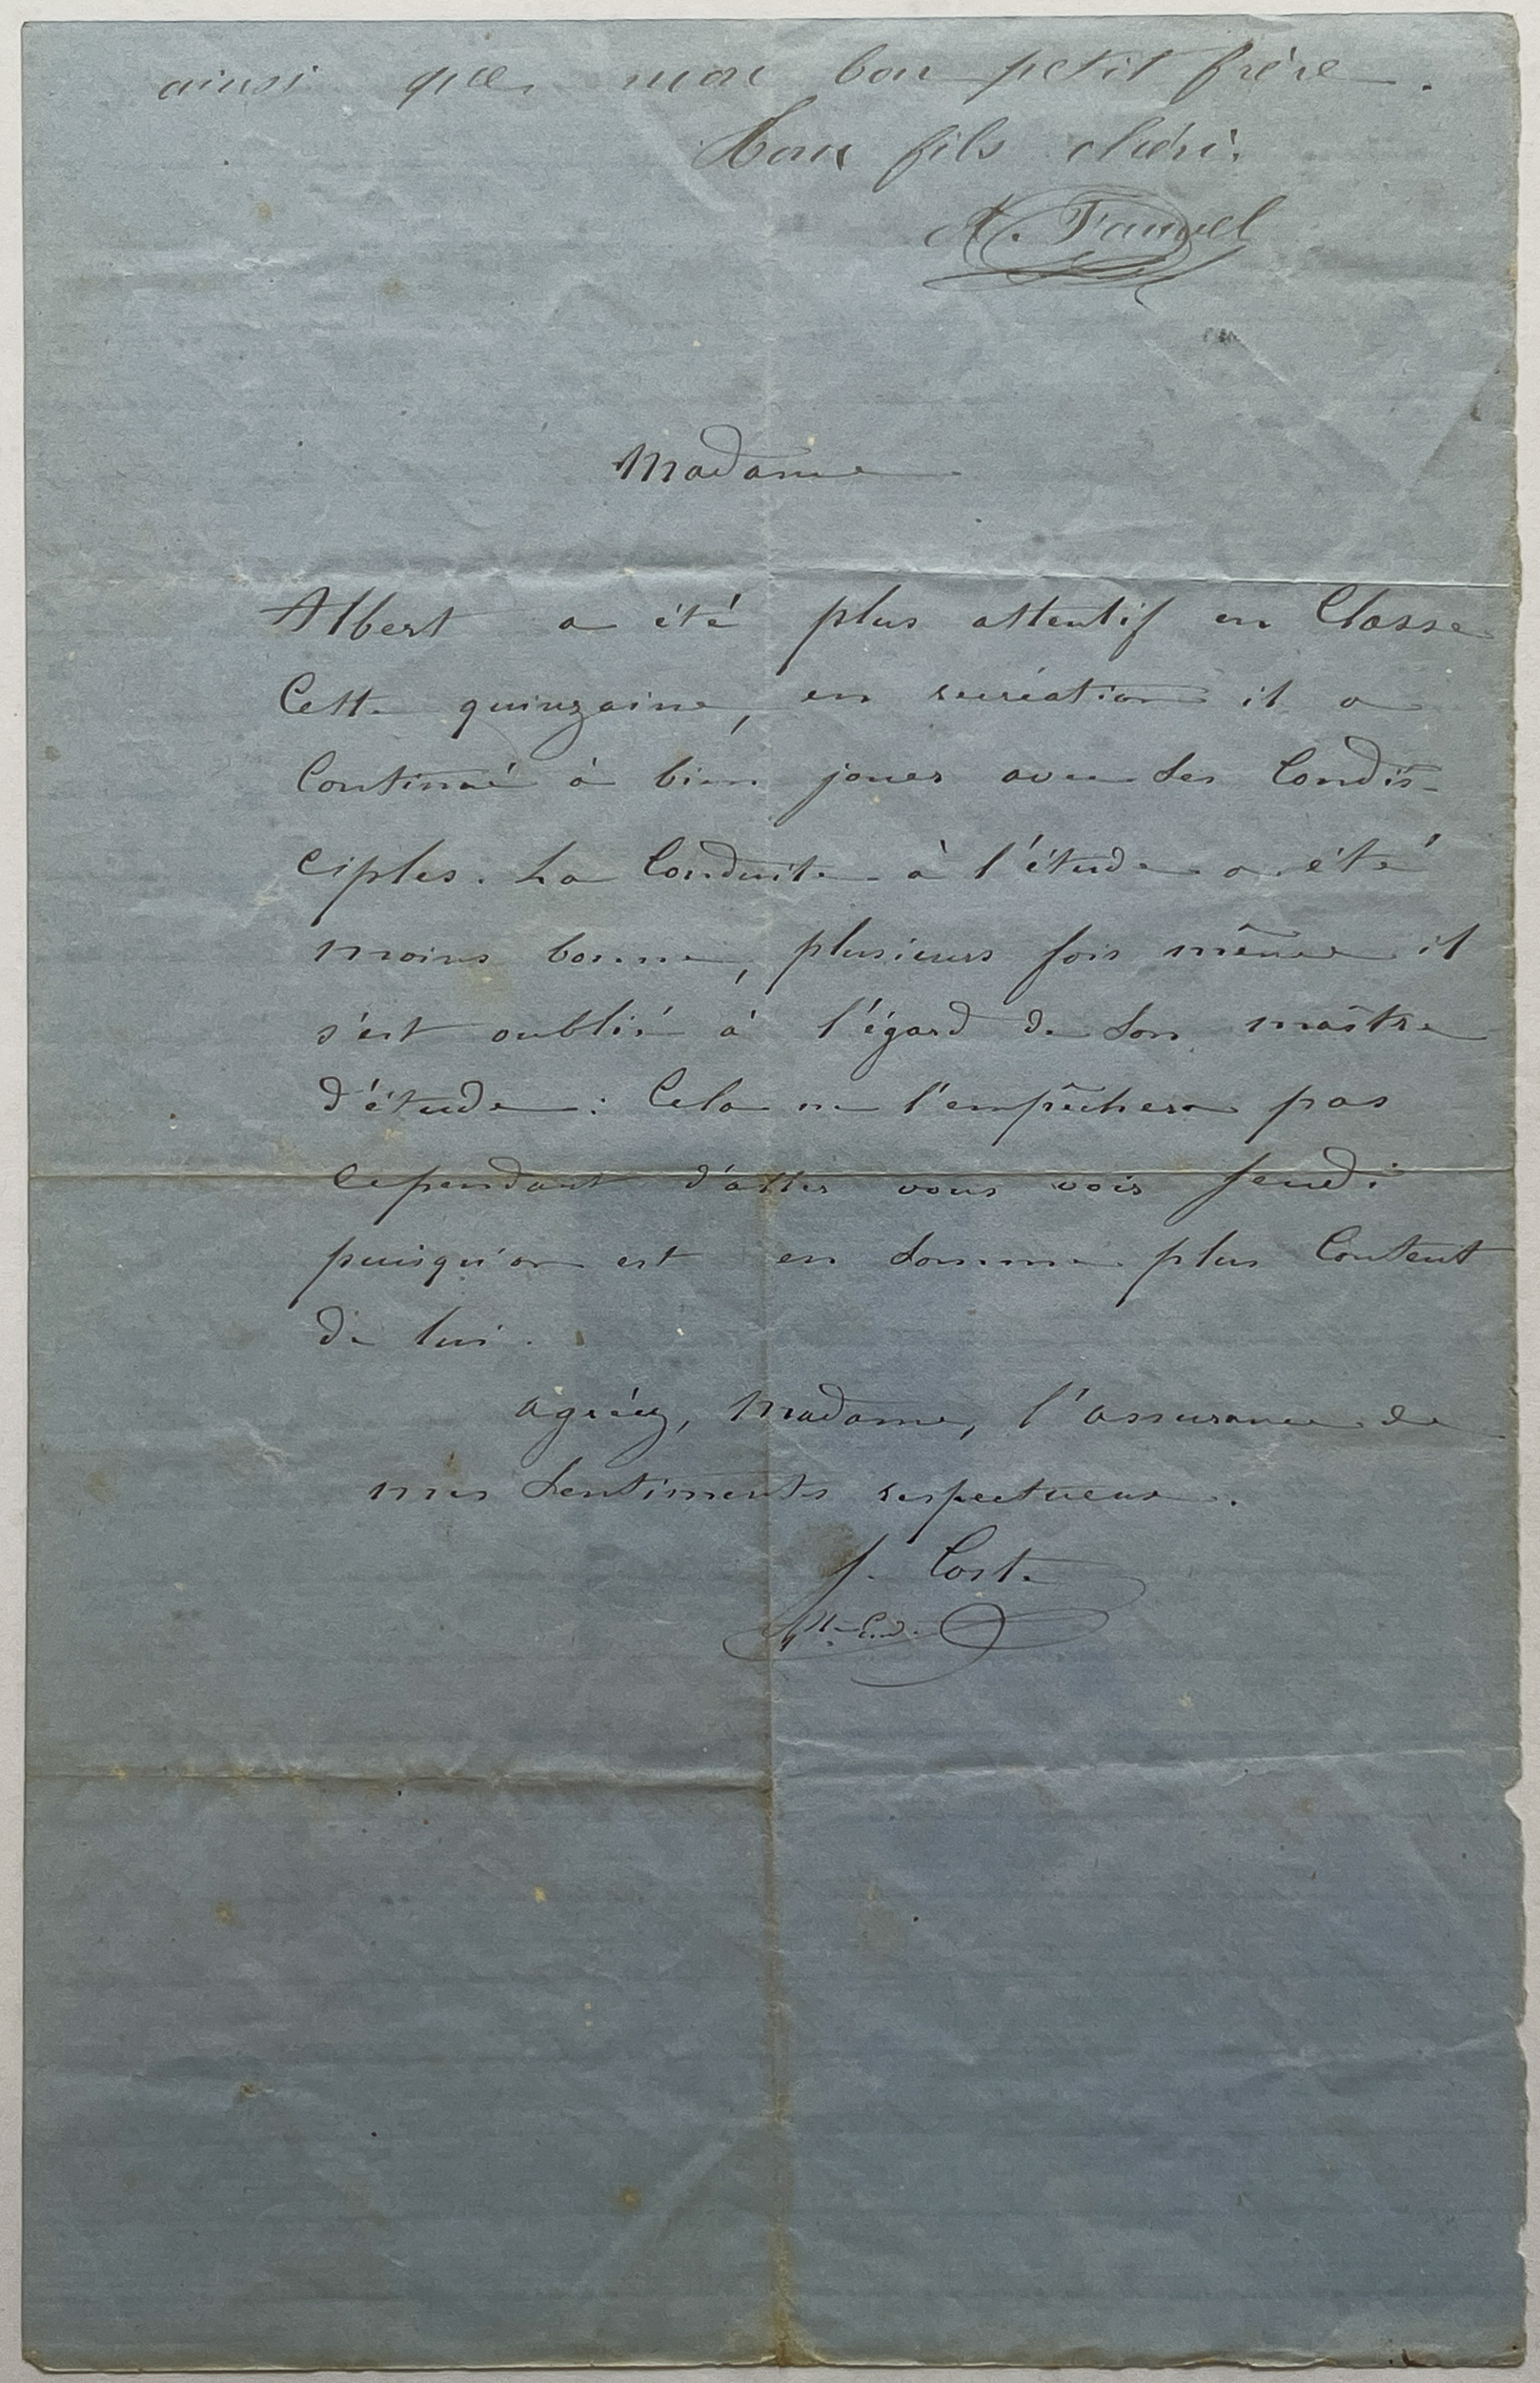 ainsi que mon bon petit frère.
Ton fils chéri.
A. Fauvel
Madame
Albert a été plus attentif en Classe
Cette quinzaine, en récréation il a
Continué à bien jouer avec ses Condis-
ciples. La Conduite à l'étude a été
moins bonne, plusieurs fois même il
s'est oublié à l'égard de son maître
d'étude : Cela ne l'empêchera pas
Cependant d'aller vous voir Jeudi
puisqu'on est en somme plus Content
de lui.
agréez, Madame, l'assurance de
mes Sentiments respectueux.
J. Coste